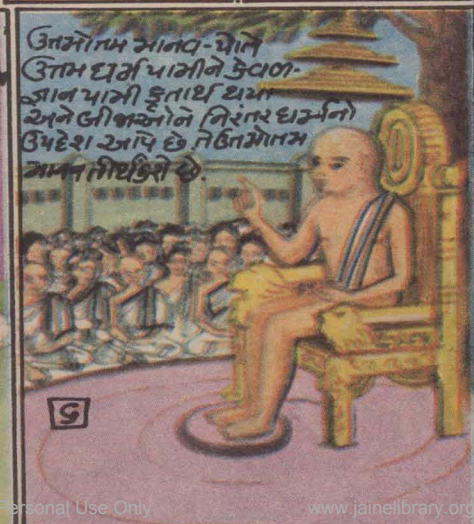 ઉત્તમોત્તમ માનવ-પોતે
ઉત્તમ ધર્મ પામીને કેવળ-
જ્ઞાન પામી કૃતાર્થ થયા
અને બીજાઓને નિરંતર ધર્મનો
ઉપદેશ આપે છે. તે ઉત્તમોત્તમ
માનવ તીર્થંકરો છે.
૬
ersonal Use Only
www.jainelibrary.org